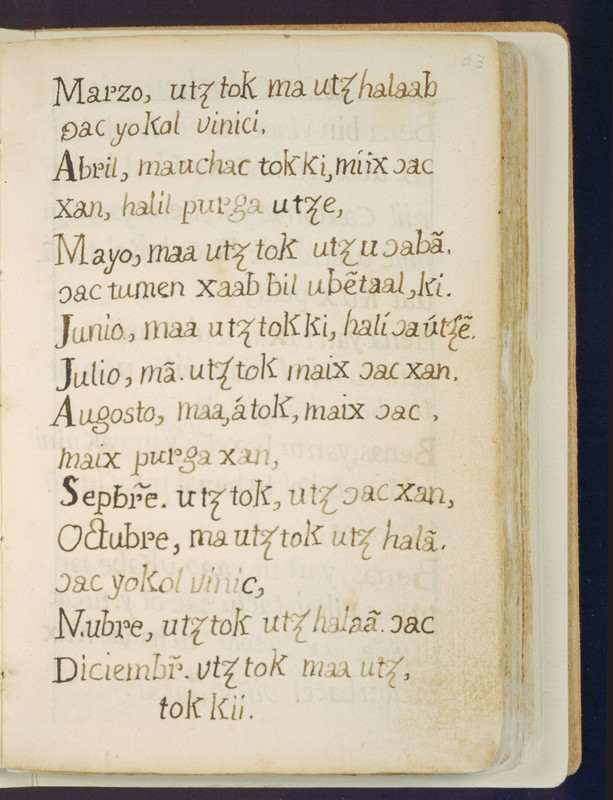 23
Marzo, utz tok ma utz halaab
ɔac yokol vinici,
Abril, mauchac tok ki, miix ɔac
xan, halil purga utze,
Mayo, maa utz tok utz u ɔabã.
ɔac tumen xaab bil ubẽtaal, ki.
Junio, maa utz tok ki, halí ɔa útzẽ.
Julio, mã. utz tok maix ɔac xan.
Augosto, maa, á tok, maix ɔac,
maix purga xan,
Sepbr̃e. utz tok, utz ɔac xan,
Octubre, ma utz tok utz halã.
ɔac yokol vinic,
N.ubre, utz tok utz halaã. ɔac
Diciembr̃. vtz tok maa utz,
tok kii.